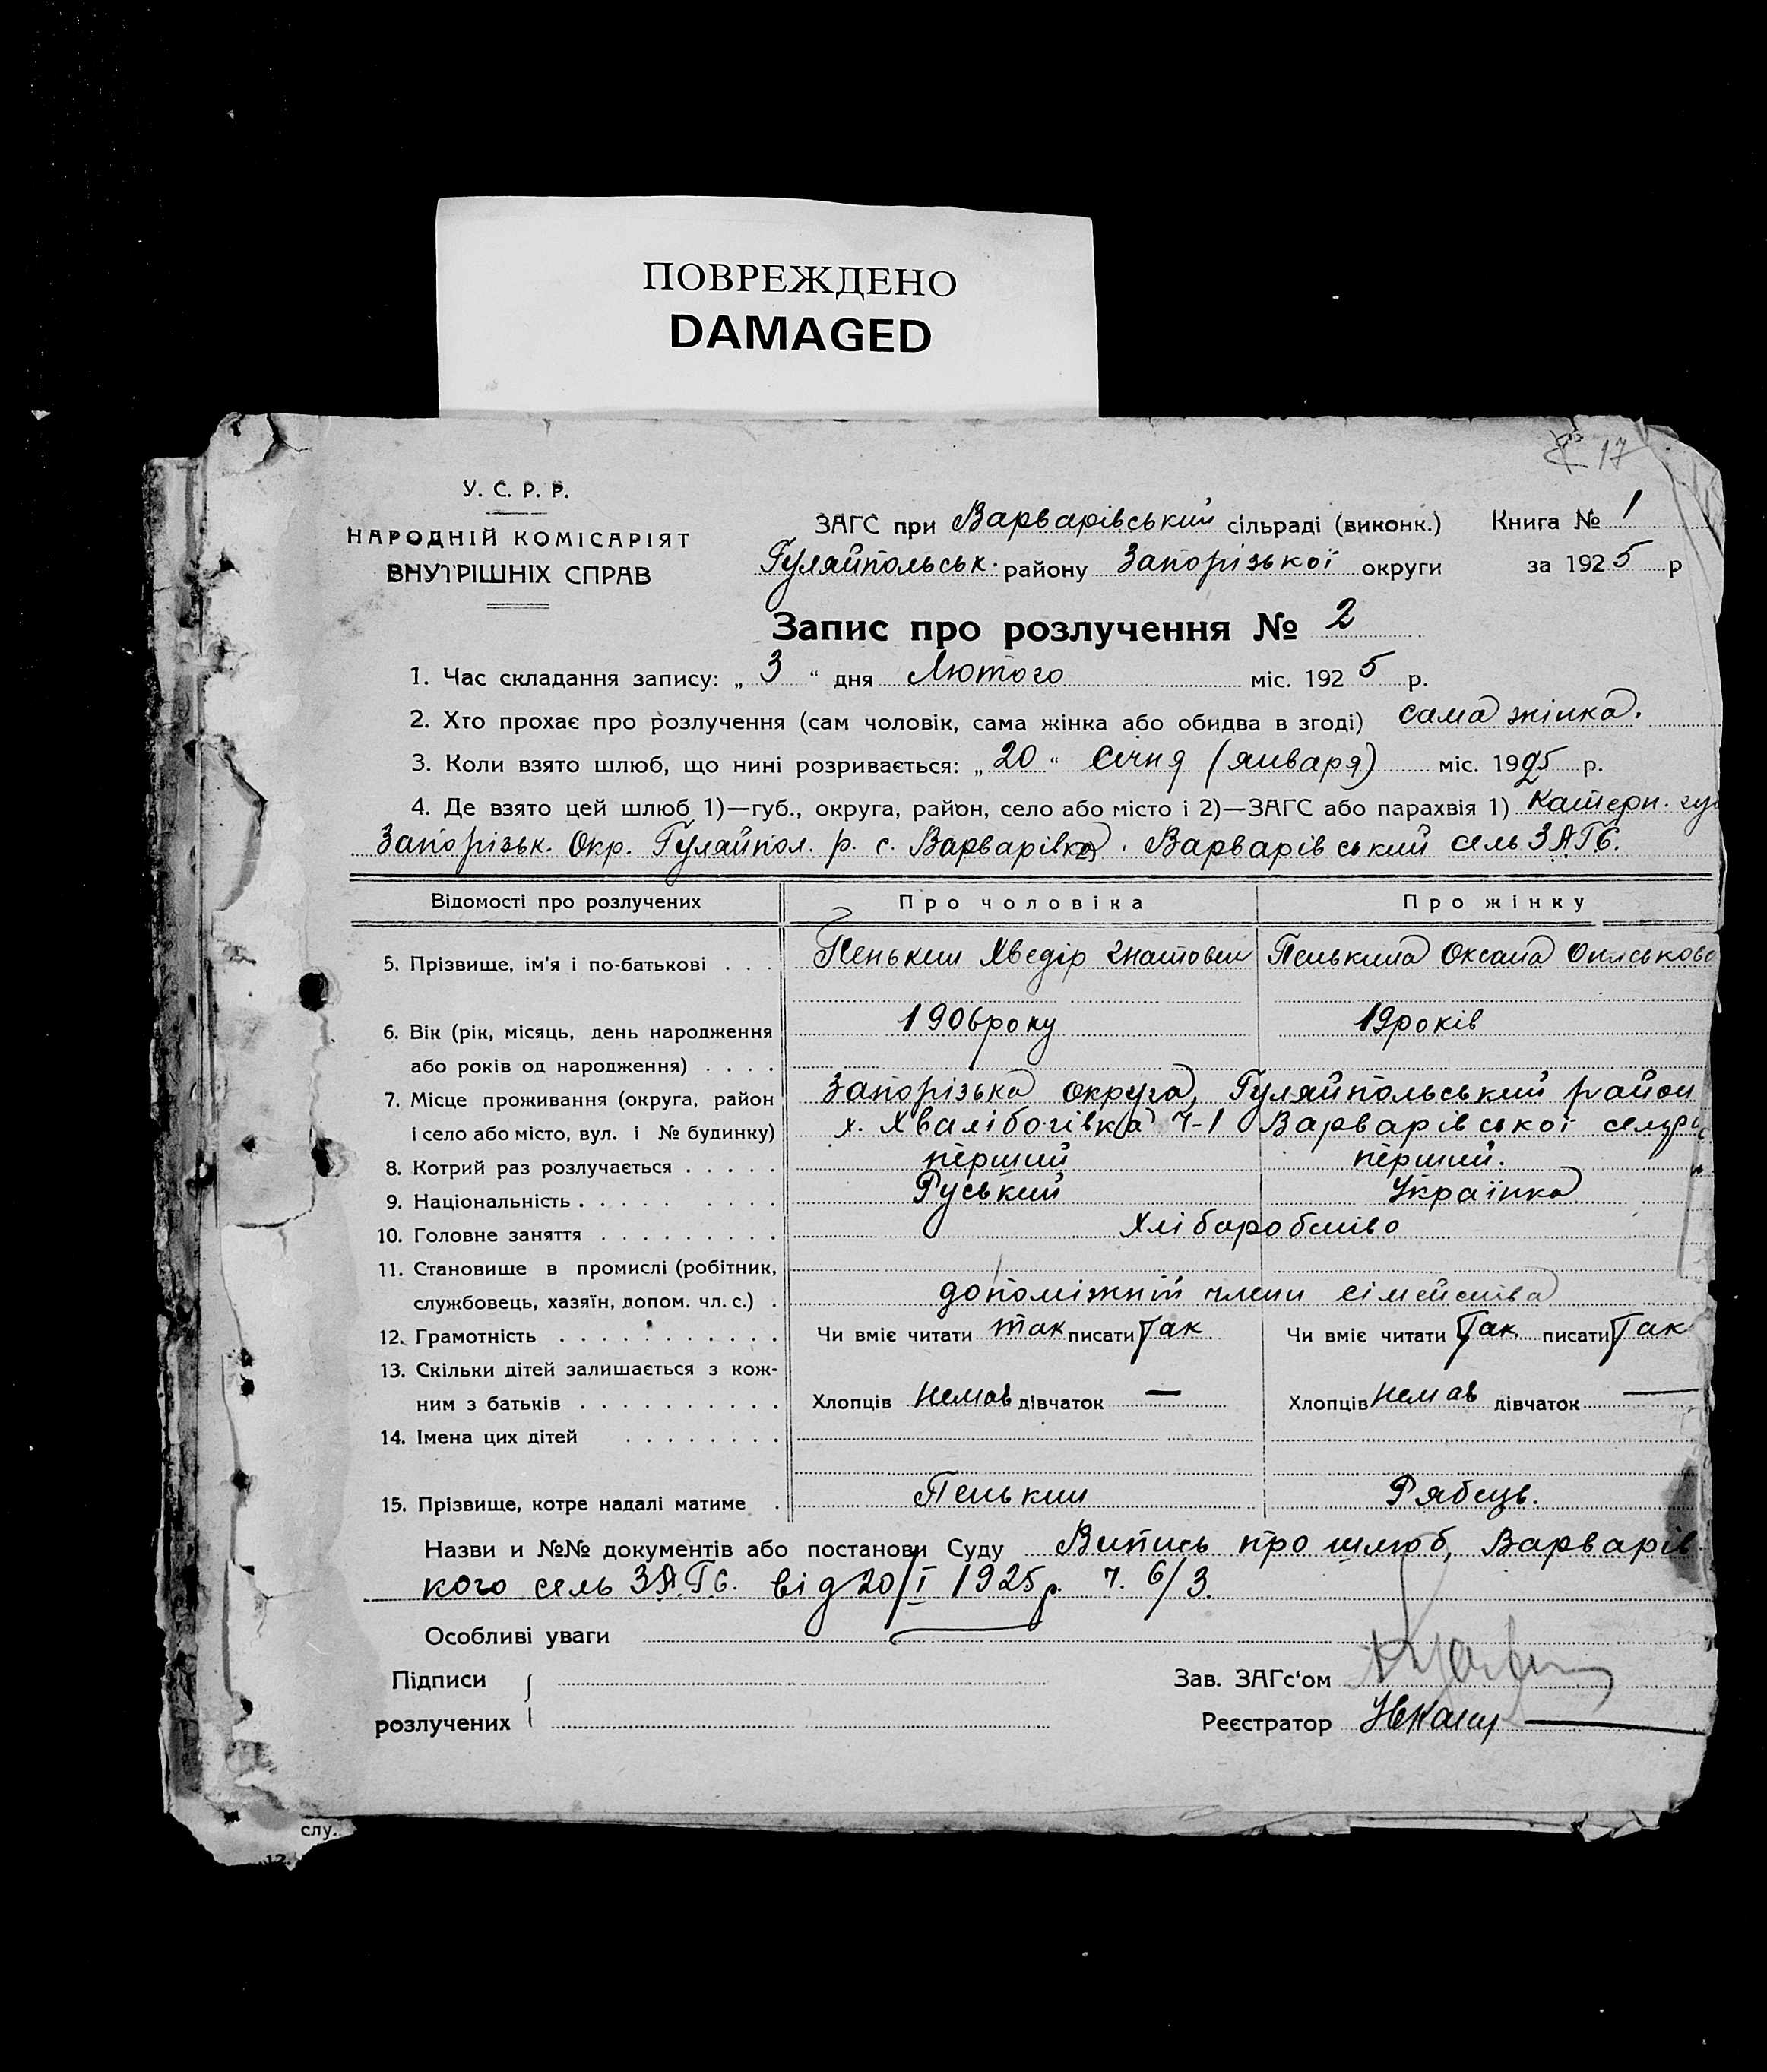 ПОВРЕЖДЕНО
DAMAGED
17
У. С. Р. Р.
НАРОДНІЙ КОМІСАРІЯТ
ВНУТРІШНІХ СПРАВ
ЗАГС при Варварівський сільраді (виконк.) Книга № 1
Гуляйпольськ. району Запорізької округи за 1925 р
Запис про розлучення № 2
1. Час складання запису: „ 3 “ дня Лютого міс. 1925 р.
2. Хто прохає про розлучення (сам чоловік, сама жінка або обидва в згоді) сама жінка.
3. Коли взято шлюб, що нині розривається: „ 20 “ Січня (января) міс. 1925 р.
4. Де взято цей шлюб 1)—губ., округа, район, село або місто і 2)—ЗАГС або парахвія 1) Катерн. гу
Запорізьк. Окр. Гуляйпол. р. с. Варварівка. Варварівський сель ЗАГС.
Відомості про розлучених Про чоловіка Про жінку
5. Прізвище, ім'я і по-батькові . . . Пенькин Хведір Гнатови Пенькина Оксана
6. Вік (рік, місяць, день народження 1906 року 19 років
або років од народження) . . . .
7. Місце проживання (округа, район Запорізька округа, Гуляйпольський район
і село або місто, вул. і № будинку) х. Хвалібогівка Ч-1 Варварівської
8. Котрий раз розлучається . . . . . перший перший.
9. Національність . . . . . . . . . Руський Українка
10. Головне заняття . . . . . . . . . Хліборобство
11. Становище в промислі (робітник,
службовець, хазяїн, допом. чл. с.) . допоміжній члени сімейства
12. Грамотність . . . . . . . . . . . Чи вміє читати так писати Так Чи вміє читати Так писати Так
13. Скільки дітей залишається з кож-
ним з батьків . . . . . . . . . . Хлопців немає дівчаток — Хлопців немає дівчаток —
14. Імена цих дітей . . . . . . . .
15. Прізвище, котре надалі матиме . Пенькин Рябець.
Назви и №№ документів або постанови Суду Випись про шлюб, Варварів
кого сель ЗАГС. від 20/I 1925 р. ч. 6/3.
Особливі уваги
Підписи
розлучених
Зав. ЗАГс‘ом
Реєстратор
слу.
12.